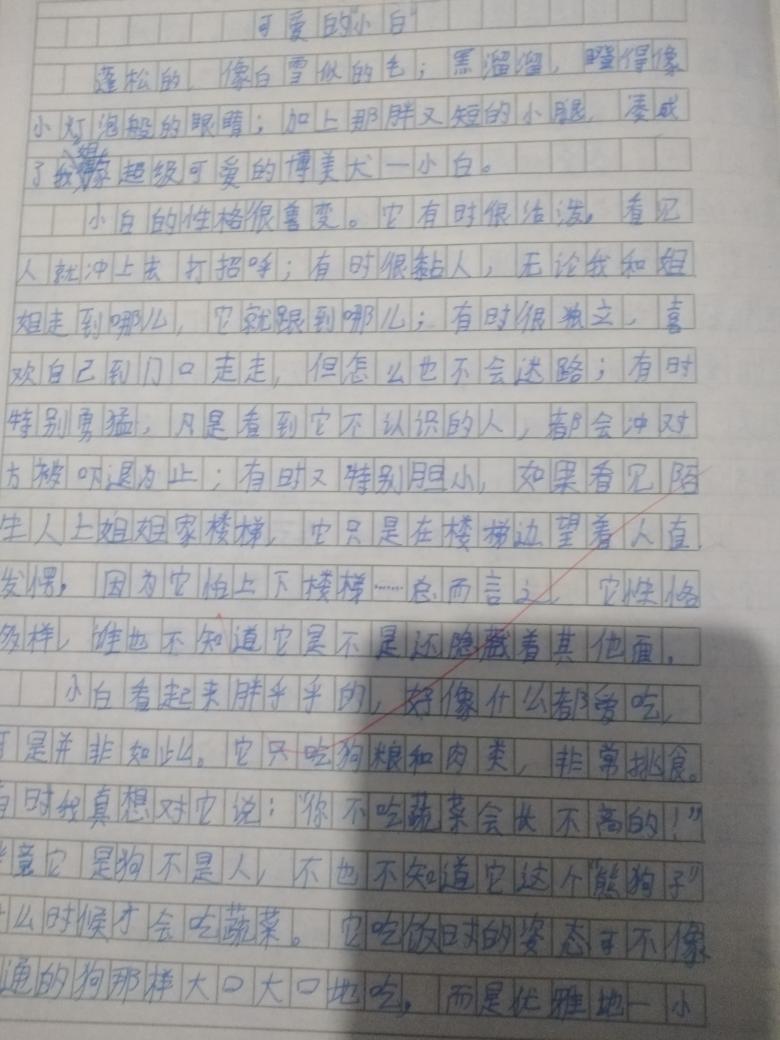 可爱的"小白"
蓬松的，像白雪似的毛；黑溜溜，瞪得像
小灯泡般的眼睛；加上那胖又短的小腿，凑成
了我姐家超级可爱的博美犬一小白。
小白的性格很善变。它有时很活泼，看见
人就冲上去打招呼；有时很黏人，无论我和姐
姐走到哪儿，它就跟到哪儿；有时很独立，喜
欢自己到门口走走，但怎么也不会迷路；有时
特别勇猛，凡是看到它不认识的人，都会冲对
方被吓退为止；有时又特别胆小，如果看见陌
生人上姐姐家楼梯，它只是在楼梯边望着人直
发愣，因为它怕上下楼梯……总而言之，它性格
多样，谁也不知道它是不是还隐藏着其他面。
小白看起来胖乎乎的，好像什么都爱吃，
可是并非如此。它只吃狗粮和肉类，非常挑食。
有时我真想对它说："你不吃蔬菜会长不高的！"
竟它是狗不是人，不也不知道它这个"熊狗子"
么时候才会吃蔬菜。它吃饭时的姿态可不像
通的狗那样大口大口地吃，而是优雅地一小